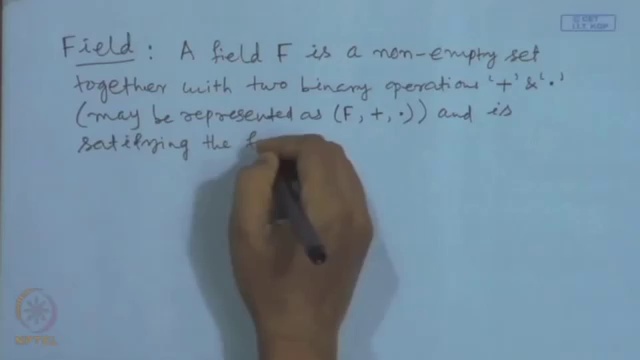 Field : A field F is a non-empty set
together with two binary operations '+' & '.'
(may be represented as (F, +, .)) and is
satifying the f
© CET
I.I.T. KGP
NPTEL